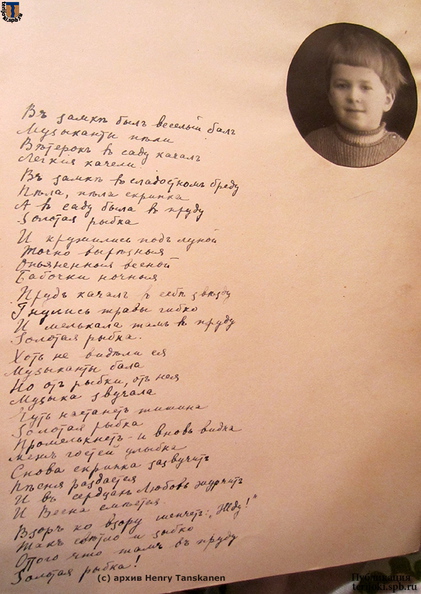 Въ замкѣ былъ веселый балъ
Музыканты пѣли
Вѣтерокъ въ саду качалъ
Легкія качели
Въ замкѣ въ сладостномъ бреду
Пѣла, пѣла скрипка
А въ саду была въ пруду
Золотая рыбка
И кружились подъ луной
Точно вырѣзныя
Опьяненныя весной
Бабочки ночныя
Прудъ качалъ въ себѣ звѣзду
Гнулись травы гибко
И мелькала тамъ въ пруду
Золотая рыбка.
Хоть не видѣли ея
Музыканты бала
Но отъ рыбки, отъ нея
Музыка звучала
Чуть настанетъ тишина
Золотая рыбка
Промелькнетъ - и вновь видна
Межъ гостей улыбка
Снова скрипка зазвучитъ
Пѣсня раздается
И въ сердцахъ Любовь журчитъ
И Весна смѣется.
Взоръ ко взору шепчетъ: "Жду!"
Такъ свѣтло и зыбко
Отого что тамъ въ пруду
Золотая рыбка!
(c) архив Henry Tanskanen
Публикация
terijoki.spb.ru